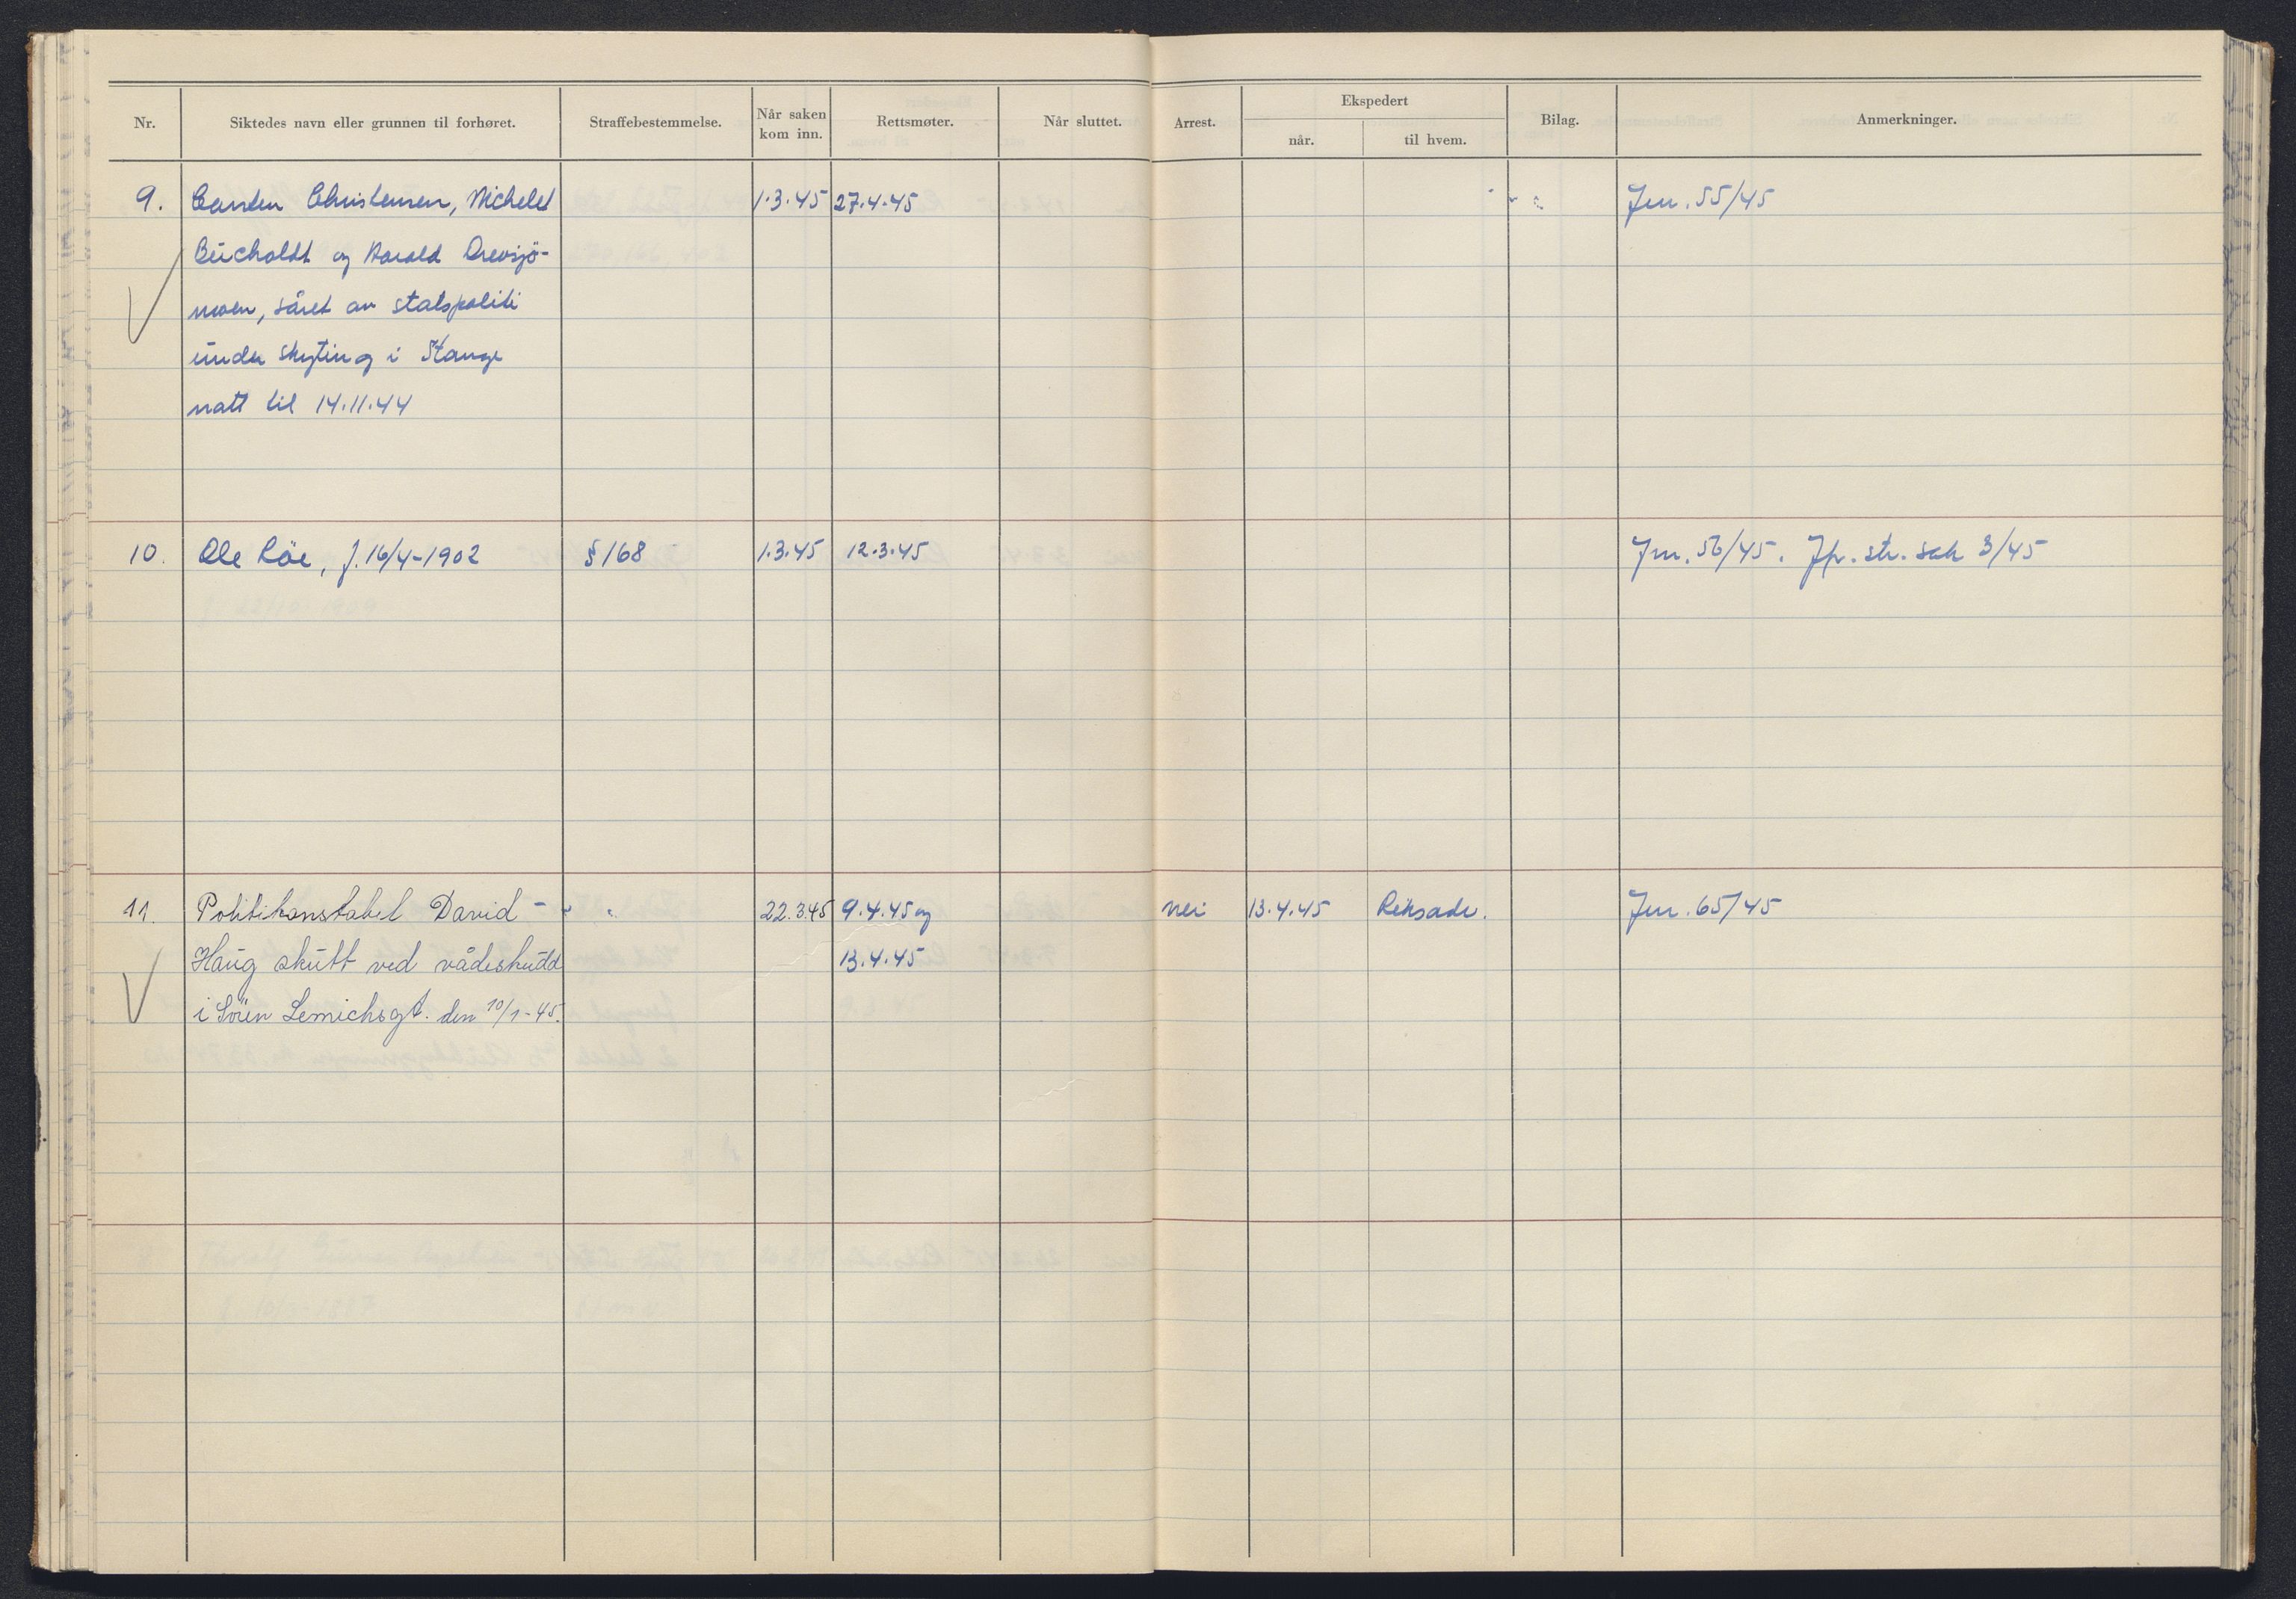 Nr. Siktedes navn eller grunnen til forhøret. Straffebestemmelse. Når saken kom inn. Rettsmøter. Når sluttet. Arrest. Ekspedert når. til hvem. Bilag. Anmerkninger.
9. Carsten Christensen, Michelet 1.3.45 27.4.45 Jnr. 55/45
Bucholdt og Harald Drevsjö-
moen, såret av statspoliti
under skyting i Stange
natt til 14.11.44
10. Ole Röe, f. 16/4-1902 §168 1.3.45 12.3.45 Jnr. 56/45. Jfr. str. sak 3/45
11. Politikonstabel David 22.3.45 9.4.45 og nei 13.4.45 Riksadv. Jnr. 65/45
Haug skutt ved vådeskudd 13.4.45
i Sören Lemichsgt. den 10/1-45.